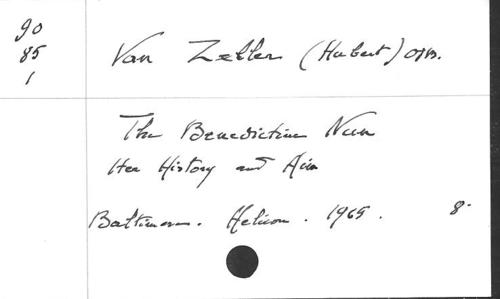 90
85
1
Van Zeller (Hubert) OSB.
The Benedictine Nun
Her History and Aim
Baltimore. Helicon. 1965. 8°